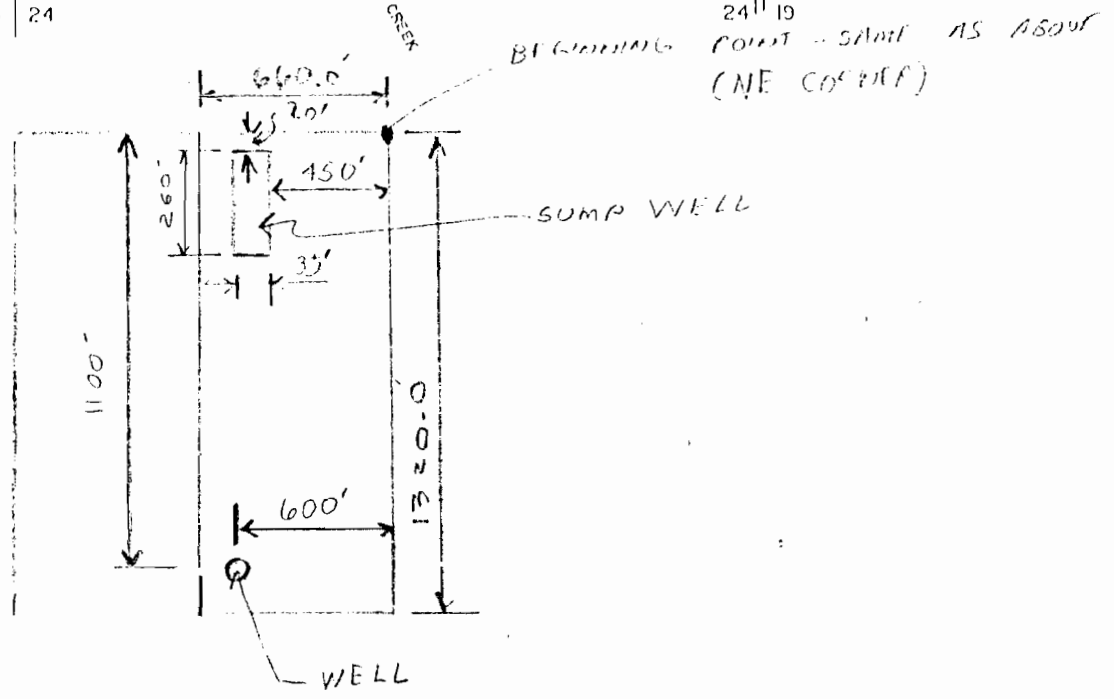 24
CREEK
24 19
BEGINNING POINT - SAME AS ABOVE
(NE CORNER)
660.0'
20'
260'
450'
SUMP WELL
35'
1100'
1320.0
600'
WELL